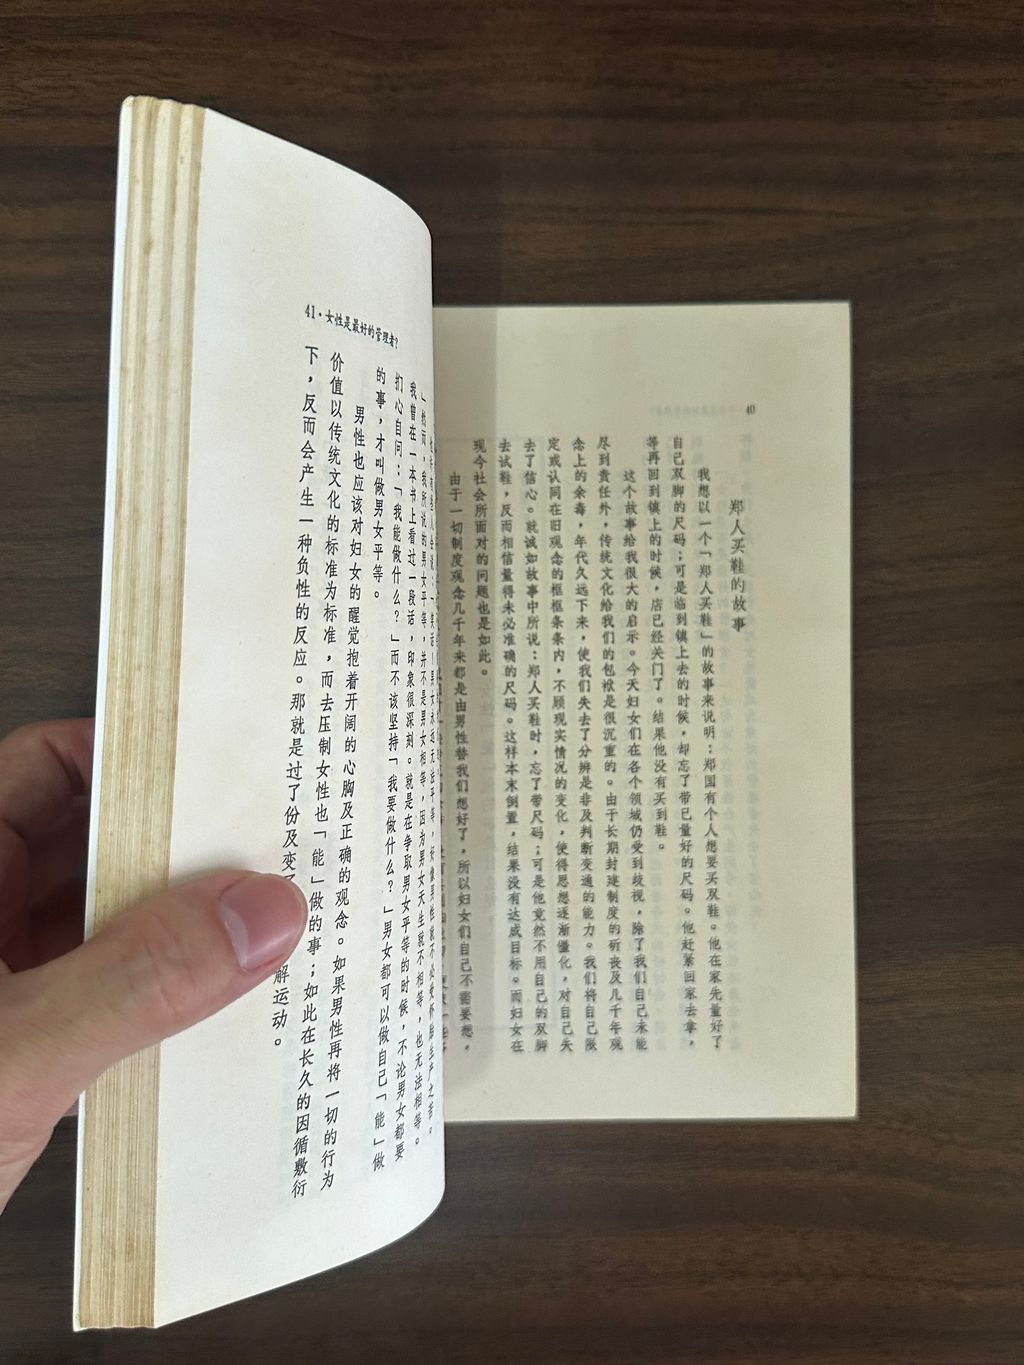 40
郑人买鞋的故事
我想以一个「郑人买鞋」的故事来说明：郑国有个人想要买双鞋。他在家先量好了
自己双脚的尺码；可是临到镇上去的时候，却忘了带已量好的尺码。他赶紧回家去拿，
等再回到镇上的时候，店已经关门了。结果他没有买到鞋。
这个故事给我很大的启示。今天妇女们在各个领域仍受到歧视，除了我们自己未能
尽到责任外，传统文化给我们的包袱是很沉重的。由于长期封建制度的斫丧及几千年观
念上的余毒，年代久远下来，使我们失去了分辨是非及判断变通的能力。我们将自己限
定或认同在旧观念的框框条条内，不顾现实情况的变化，使得思想逐渐僵化，对自己失
去了信心。就诚如故事中所说：郑人买鞋时，忘了带尺码；可是他竟然不用自己的双脚
去试鞋，反而相信量得未必准确的尺码。这样本末倒置，结果没有达成目标。而妇女在
现今社会所面对的问题也是如此。
由于一切制度观念几千年来都是由男性替我们想好了，所以妇女们自己不需要想，
41·女性是最好的管理者？
」然而，我所说的男女平等，并不是男女相等，因为男女天生就不相等，也无法相等。
我曾在一本书上看过一段话，印象很深刻。就是在争取男女平等的时候，不论男女都要
扪心自问：「我能做什么？」而不该坚持「我要做什么？」男女都可以做自己「能」做
的事，才叫做男女平等。
男性也应该对妇女的醒觉抱着开阔的心胸及正确的观念。如果男性再将一切的行为
价值以传统文化的标准为标准，而去压制女性也「能」做的事；如此在长久的因循敷衍
下，反而会产生一种负性的反应。那就是过了份及变
解运动。